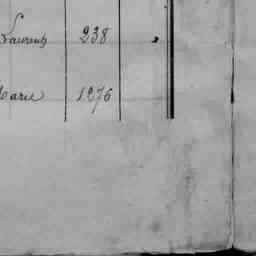 Laurent 238
Marie 1276